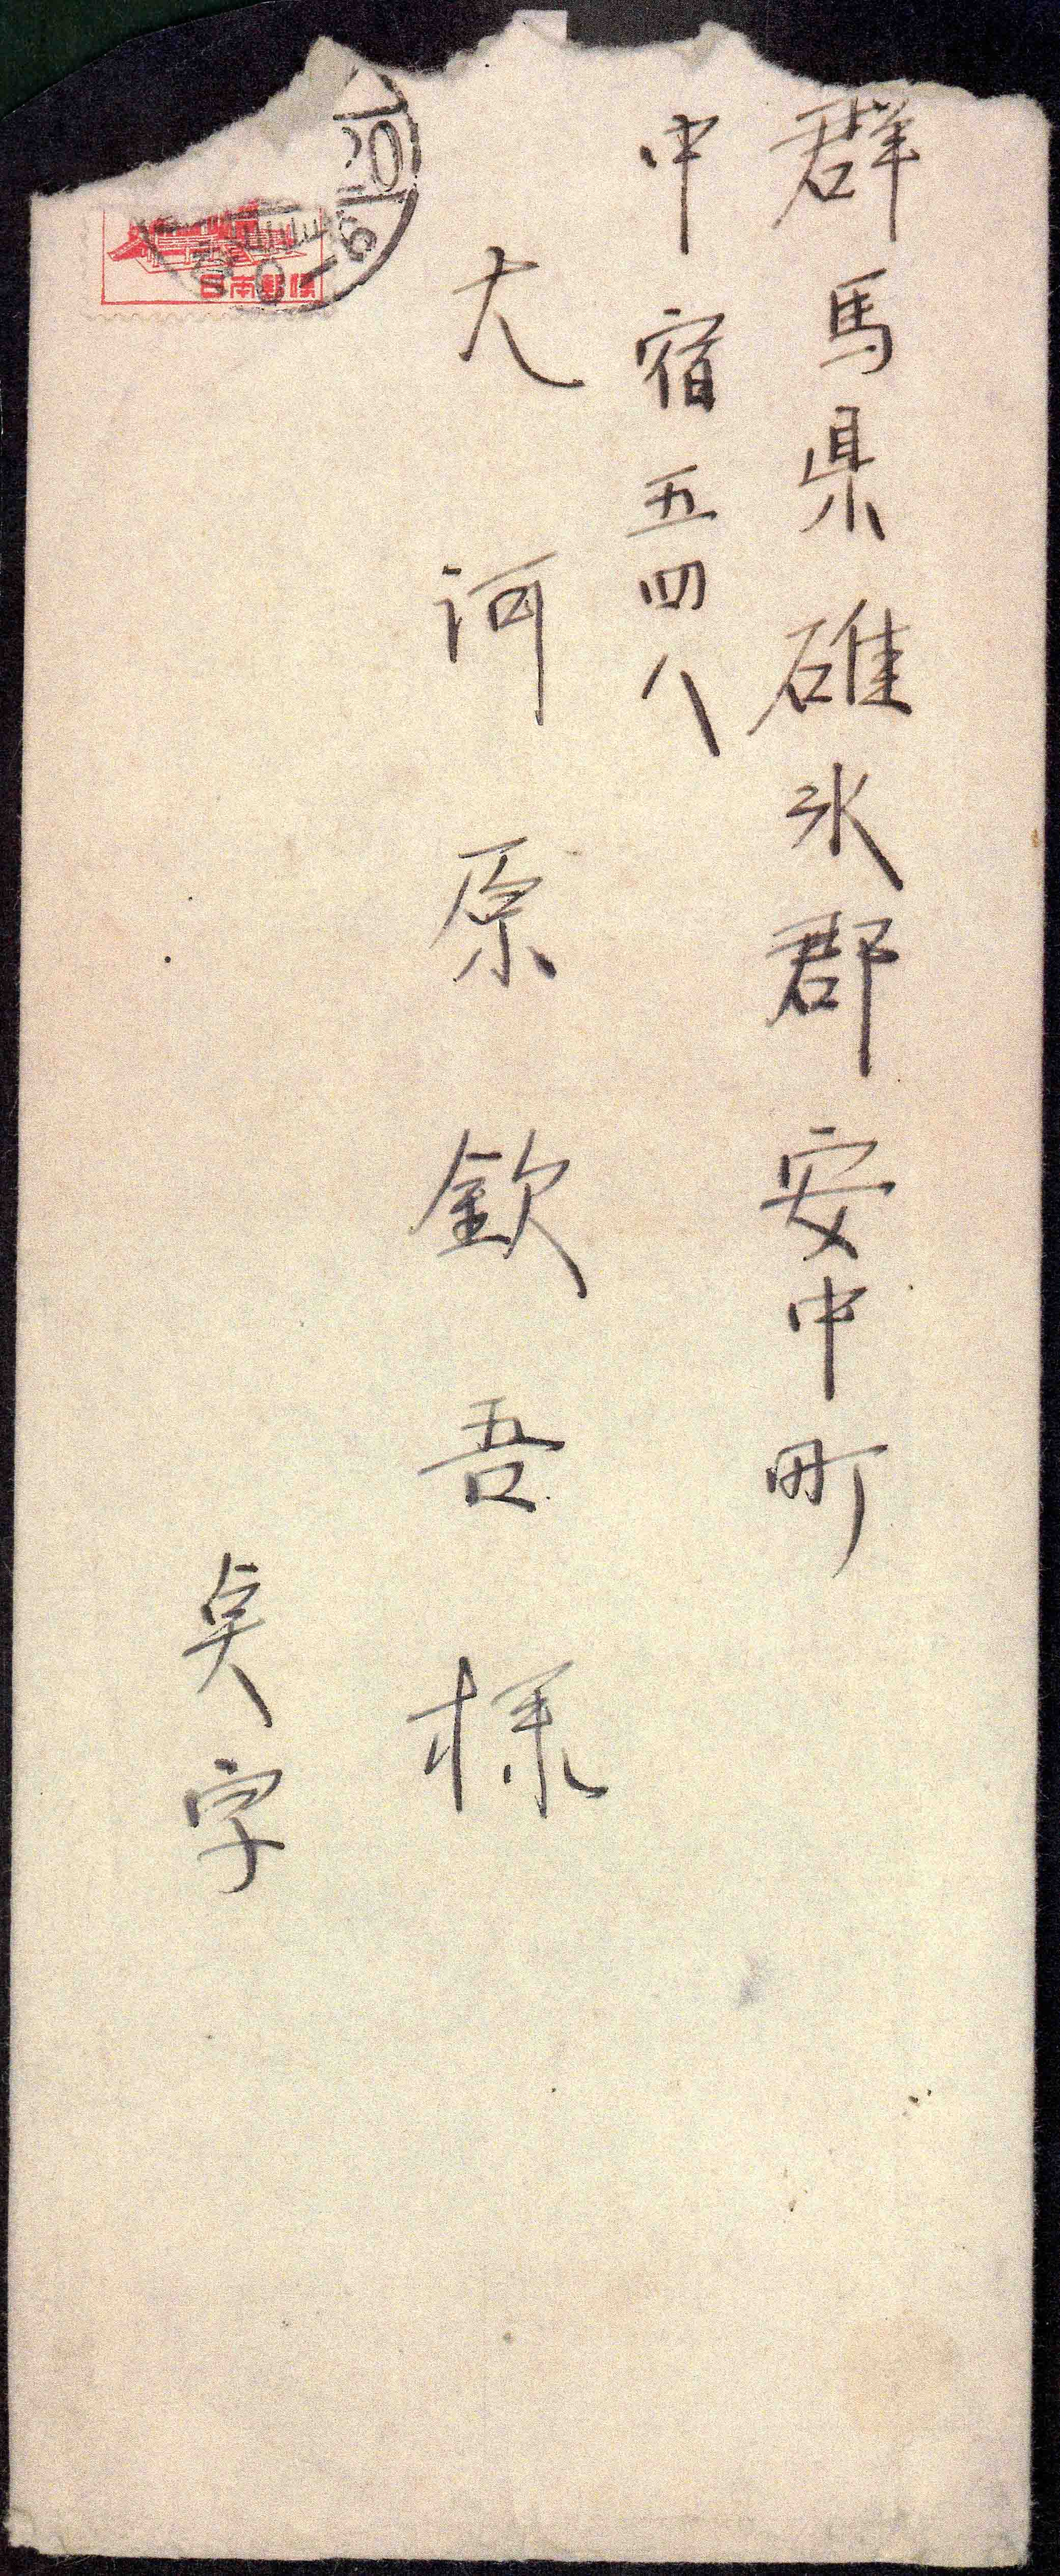 群馬県碓氷郡安中町
中宿五四八
大河原欽吾様
点字
日本郵便